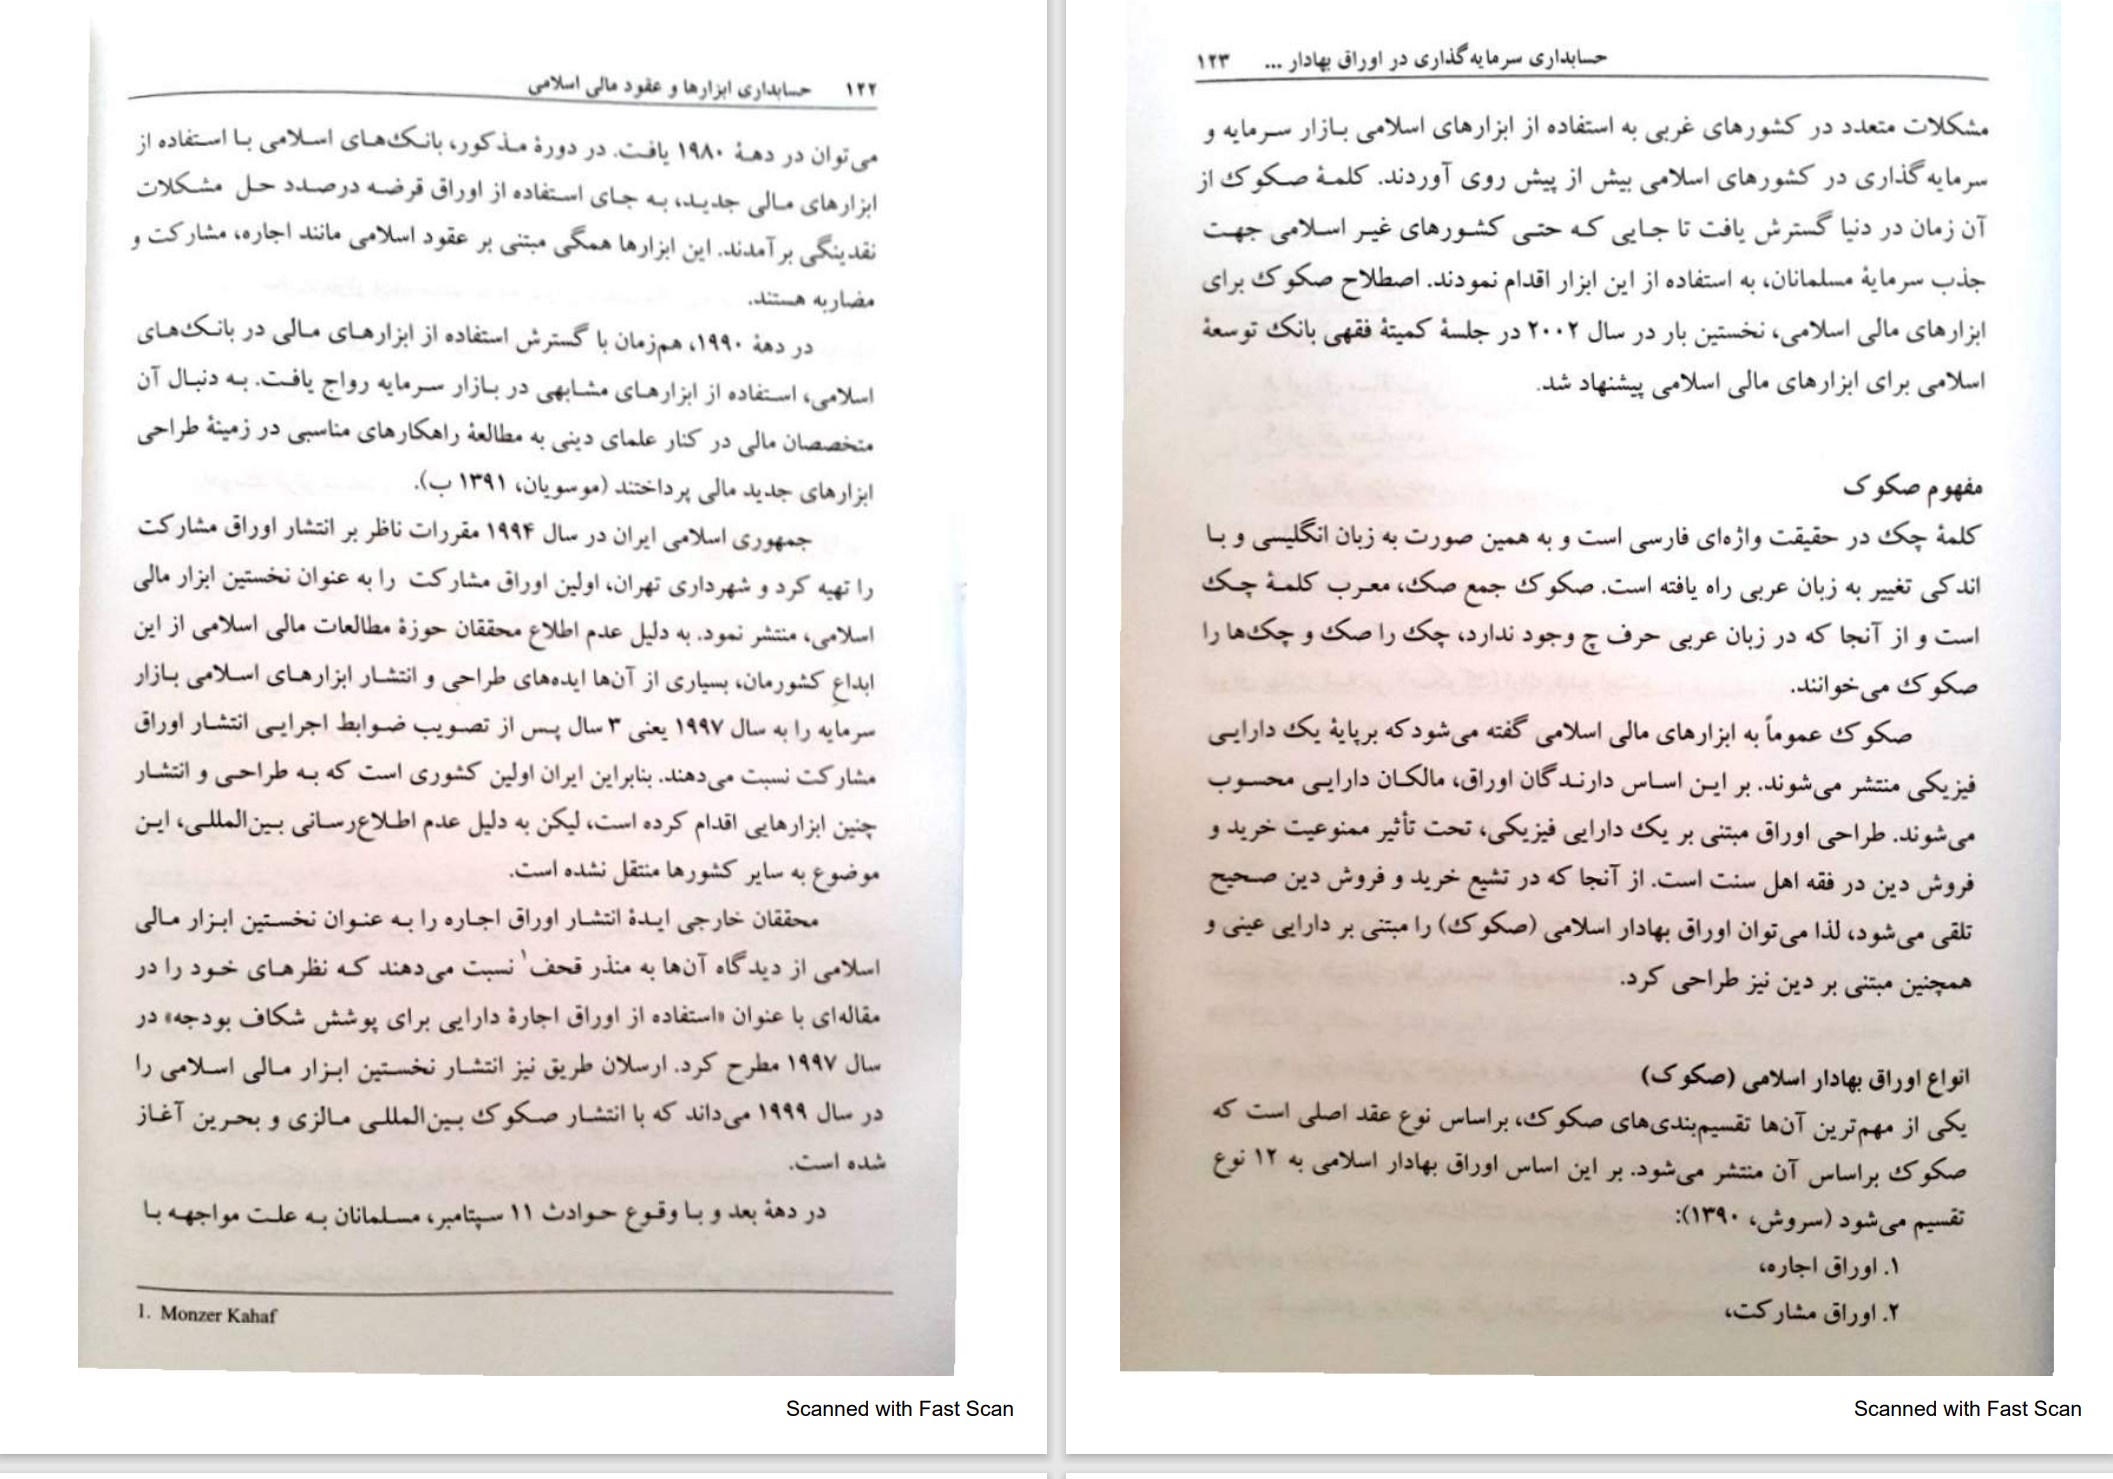 ۱۲۲ حسابداری ابزارها و عقود مالی اسلامی
می‌توان در دههٔ ۱۹۸۰ یافت. در دورهٔ مذکور، بانک‌های اسلامی با استفاده از
ابزارهای مالی جدید، به جای استفاده از اوراق قرضه درصدد حل مشکلات
نقدینگی برآمدند. این ابزارها همگی مبتنی بر عقود اسلامی مانند اجاره، مشارکت و
مضاربه هستند.
در دههٔ ۱۹۹۰، هم‌زمان با گسترش استفاده از ابزارهای مالی در بانک‌های
اسلامی، استفاده از ابزارهای مشابهی در بازار سرمایه رواج یافت. به دنبال آن
متخصصان مالی در کنار علمای دینی به مطالعهٔ راهکارهای مناسبی در زمینهٔ طراحی
ابزارهای جدید مالی پرداختند (موسویان، ۱۳۹۱ ب).
جمهوری اسلامی ایران در سال ۱۹۹۴ مقررات ناظر بر انتشار اوراق مشارکت
را تهیه کرد و شهرداری تهران، اولین اوراق مشارکت را به عنوان نخستین ابزار مالی
اسلامی، منتشر نمود. به دلیل عدم اطلاع محققان حوزهٔ مطالعات مالی اسلامی از این
ابداع کشورمان، بسیاری از آن‌ها ایده‌های طراحی و انتشار ابزارهای اسلامی بازار
سرمایه را به سال ۱۹۹۷ یعنی ۳ سال پس از تصویب ضوابط اجرایی انتشار اوراق
مشارکت نسبت می‌دهند. بنابراین ایران اولین کشوری است که به طراحی و انتشار
چنین ابزارهایی اقدام کرده است، لیکن به دلیل عدم اطلاع‌رسانی بین‌المللی، این
موضوع به سایر کشورها منتقل نشده است.
محققان خارجی ایدهٔ انتشار اوراق اجاره را به عنوان نخستین ابزار مالی
اسلامی از دیدگاه آن‌ها به منذر قحف۱ نسبت می‌دهند که نظرهای خود را در
مقاله‌ای با عنوان «استفاده از اوراق اجارهٔ دارایی برای پوشش شکاف بودجه» در
سال ۱۹۹۷ مطرح کرد. ارسلان طریق نیز انتشار نخستین ابزار مالی اسلامی را
در سال ۱۹۹۹ می‌داند که با انتشار صکوک بین‌المللی مالزی و بحرین آغاز
شده است.
در دههٔ بعد و با وقوع حوادث ۱۱ سپتامبر، مسلمانان به علت مواجهه با
1. Monzer Kahaf
Scanned with Fast Scan
حسابداری سرمایه‌گذاری در اوراق بهادار ... ۱۲۳
مشکلات متعدد در کشورهای غربی به استفاده از ابزارهای اسلامی بازار سرمایه و
سرمایه‌گذاری در کشورهای اسلامی بیش از پیش روی آوردند. کلمهٔ صکوک از
آن زمان در دنیا گسترش یافت تا جایی که حتی کشورهای غیر اسلامی جهت
جذب سرمایهٔ مسلمانان، به استفاده از این ابزار اقدام نمودند. اصطلاح صکوک برای
ابزارهای مالی اسلامی، نخستین بار در سال ۲۰۰۲ در جلسهٔ کمیتهٔ فقهی بانک توسعهٔ
اسلامی برای ابزارهای مالی اسلامی پیشنهاد شد.
مفهوم صکوک
کلمهٔ چک در حقیقت واژه‌ای فارسی است و به همین صورت به زبان انگلیسی و با
اندکی تغییر به زبان عربی راه یافته است. صکوک جمع صک، معرب کلمهٔ چک
است و از آنجا که در زبان عربی حرف چ وجود ندارد، چک را صک و چک‌ها را
صکوک می‌خوانند.
صکوک عموماً به ابزارهای مالی اسلامی گفته می‌شود که برپایهٔ یک دارایی
فیزیکی منتشر می‌شوند. بر این اساس دارندگان اوراق، مالکان دارایی محسوب
می‌شوند. طراحی اوراق مبتنی بر یک دارایی فیزیکی، تحت تأثیر ممنوعیت خرید و
فروش دین در فقه اهل سنت است. از آنجا که در تشیع خرید و فروش دین صحیح
تلقی می‌شود، لذا می‌توان اوراق بهادار اسلامی (صکوک) را مبتنی بر دارایی عینی و
همچنین مبتنی بر دین نیز طراحی کرد.
انواع اوراق بهادار اسلامی (صکوک)
یکی از مهم‌ترین آن‌ها تقسیم‌بندی‌های صکوک، براساس نوع عقد اصلی است که
صکوک براساس آن منتشر می‌شود. بر این اساس اوراق بهادار اسلامی به ۱۲ نوع
تقسیم می‌شود (سروش، ۱۳۹۰):
۱. اوراق اجاره،
۲. اوراق مشارکت،
Scanned with Fast Scan